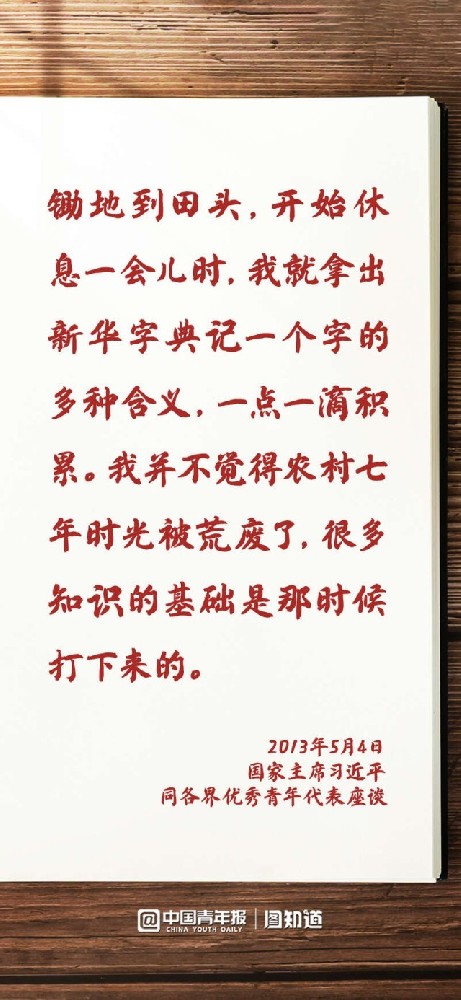 锄地到田头,开始休
息一会儿时,我就拿出
新华字典记一个字的
多种含义,一点一滴积
累。我并不觉得农村七
年时光被荒废了,很多
知识的基础是那时候
打下来的。
2013年5月4日
国家主席习近平
同各界优秀青年代表座谈
@中国青年报 | 图知道
CHINA YOUTH DAILY